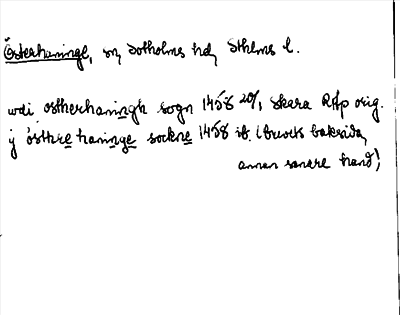 Österhaninge, sn, Sotholms hd, Sthlms l.
wdi ostherhaningh sogn 1458 20/1 Skara RAp orig.
j østhre haninge sockne 1458 ib. (brevets baksida,
annan senare hand)